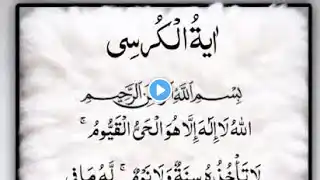 اٰيةُ الْكُرْسِى
بِسْمِ اللّٰهِ الرَّحْمٰنِ الرَّحِيْمِ
اللّٰهُ لَاۤ اِلٰهَ اِلَّا هُوَ الْحَىُّ الْقَيُّوْمُ ۚ
لَا تَأْخُذُهٗ سِنَةٌ وَّلَا نَوْمٌ ؕ لَهٗ مَا فِى